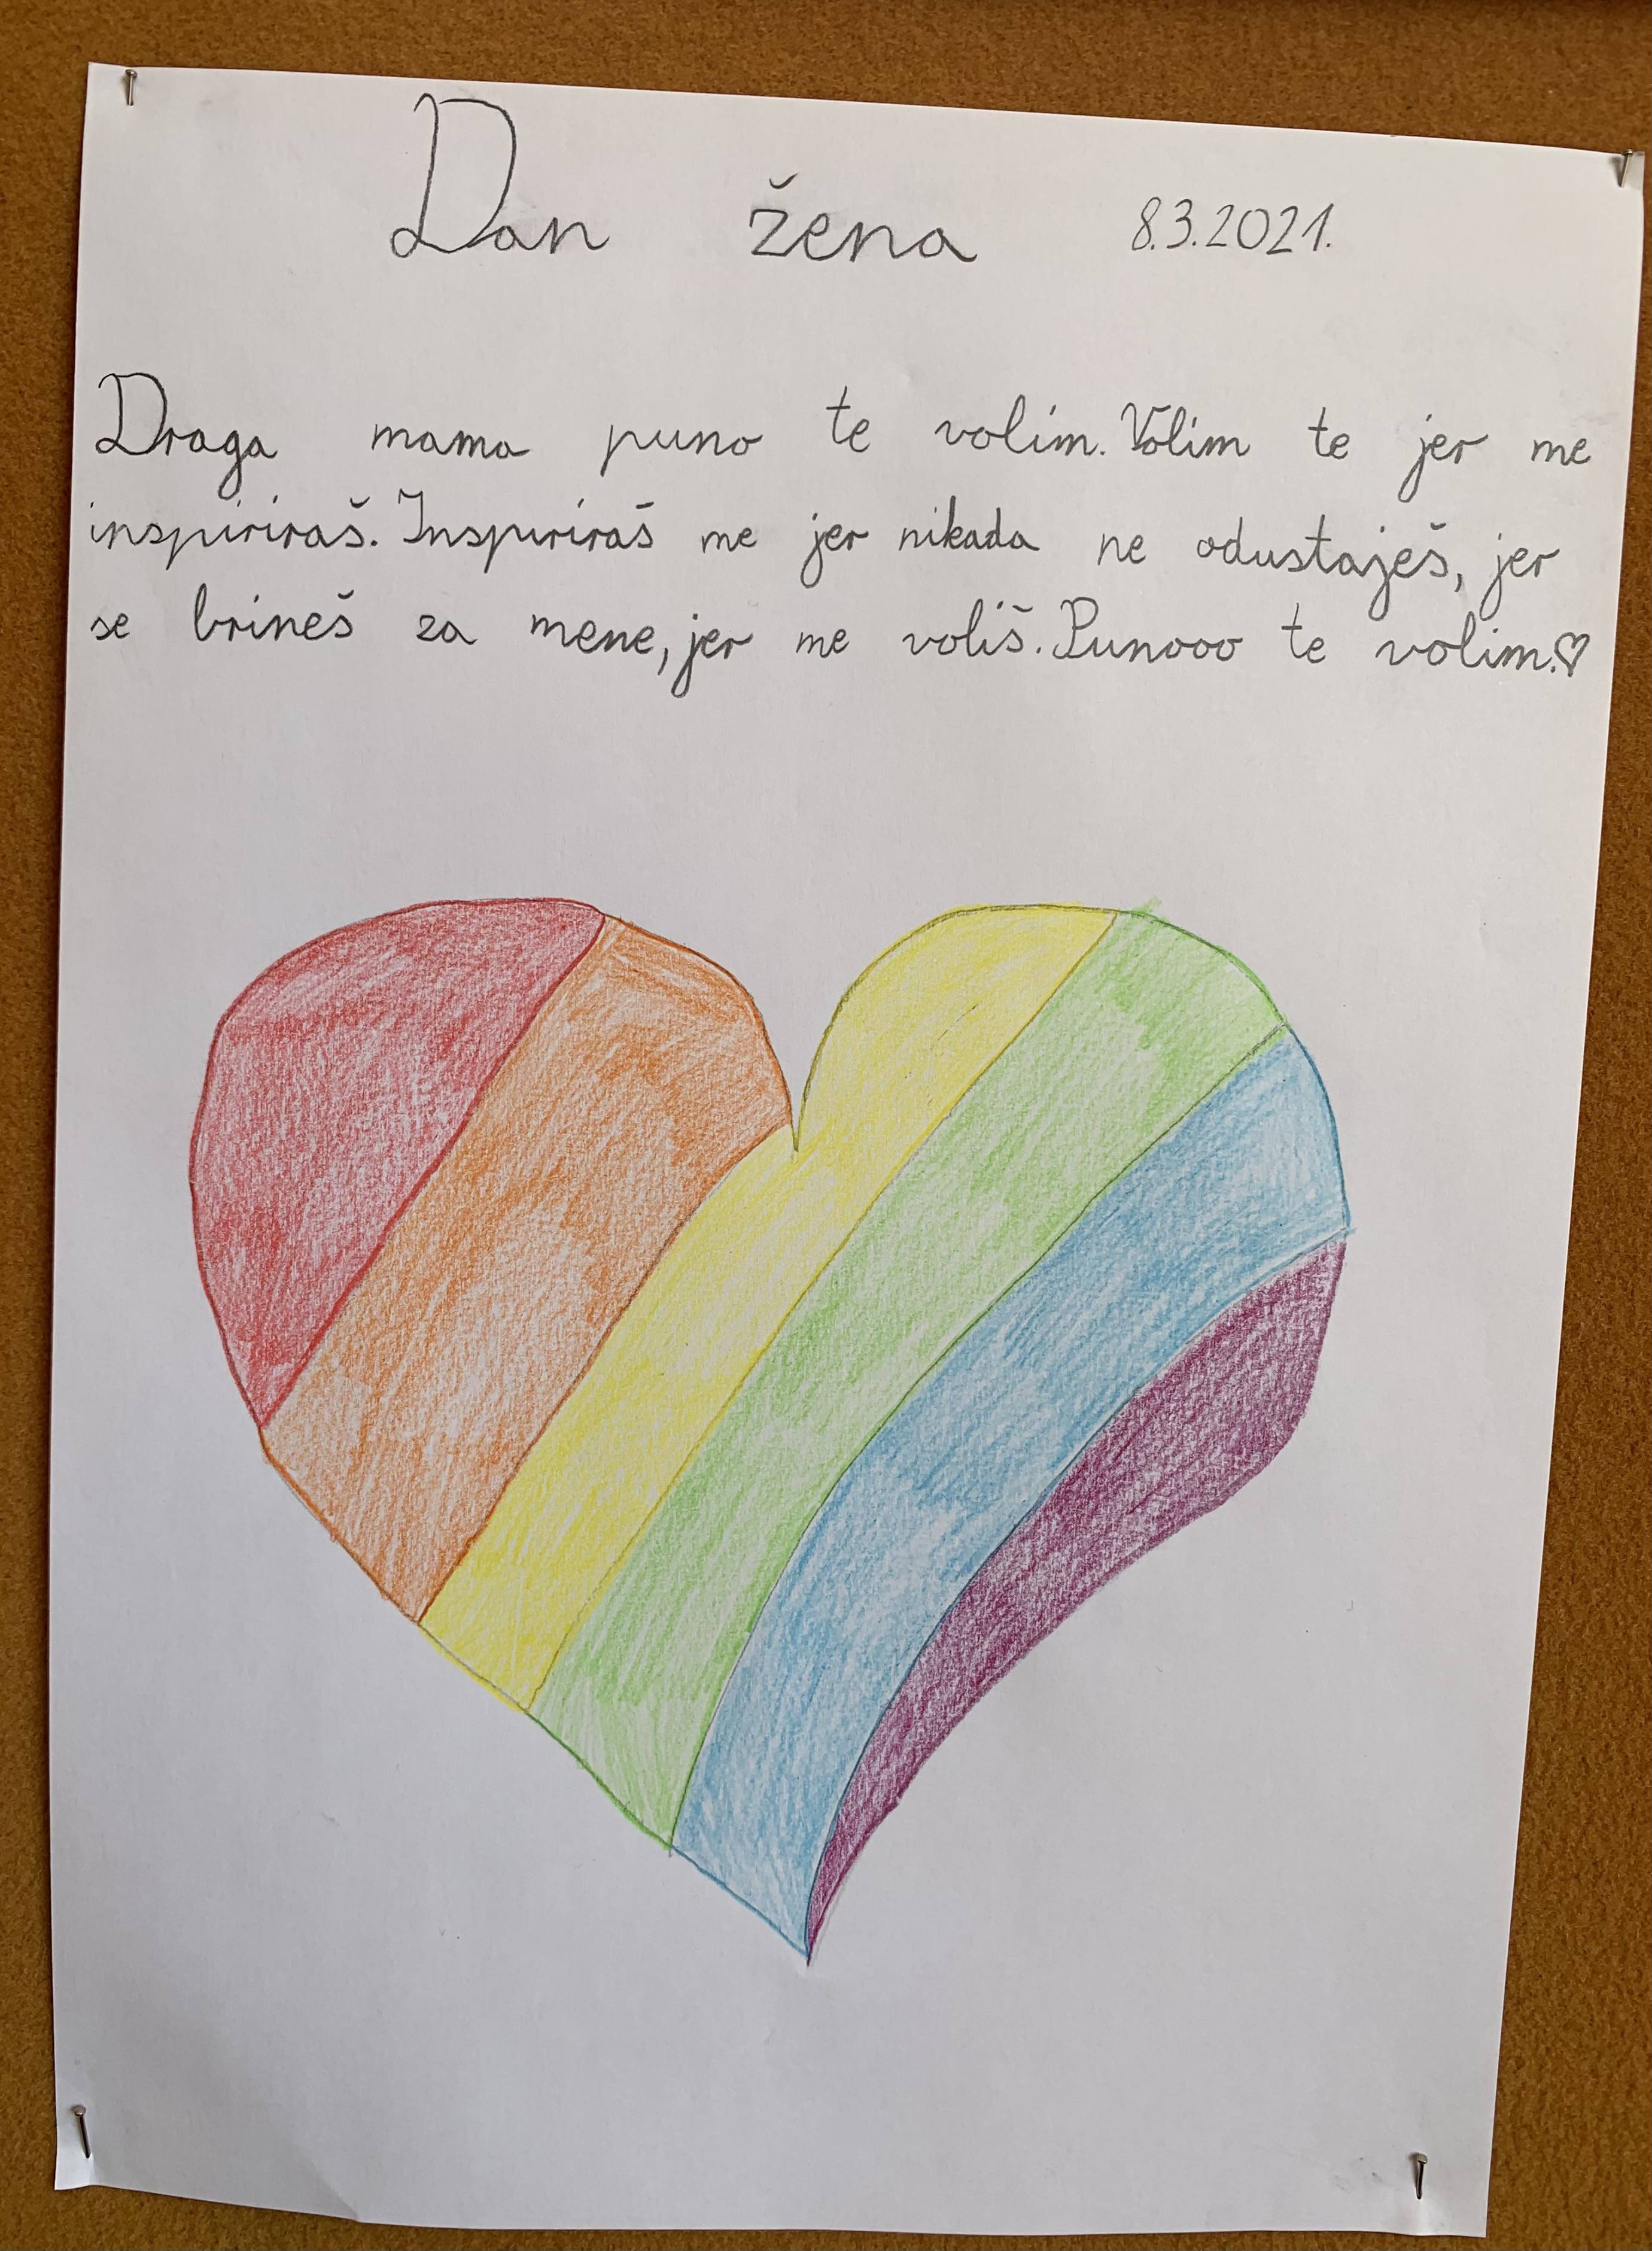 Dan žena 8.3.2021.
Draga mama puno te volim. Volim te jer me
inspiriraš. Inspiriraš me jer nikada ne odustaješ, jer
se brineš za mene, jer me voliš. Punooo te volim.♡